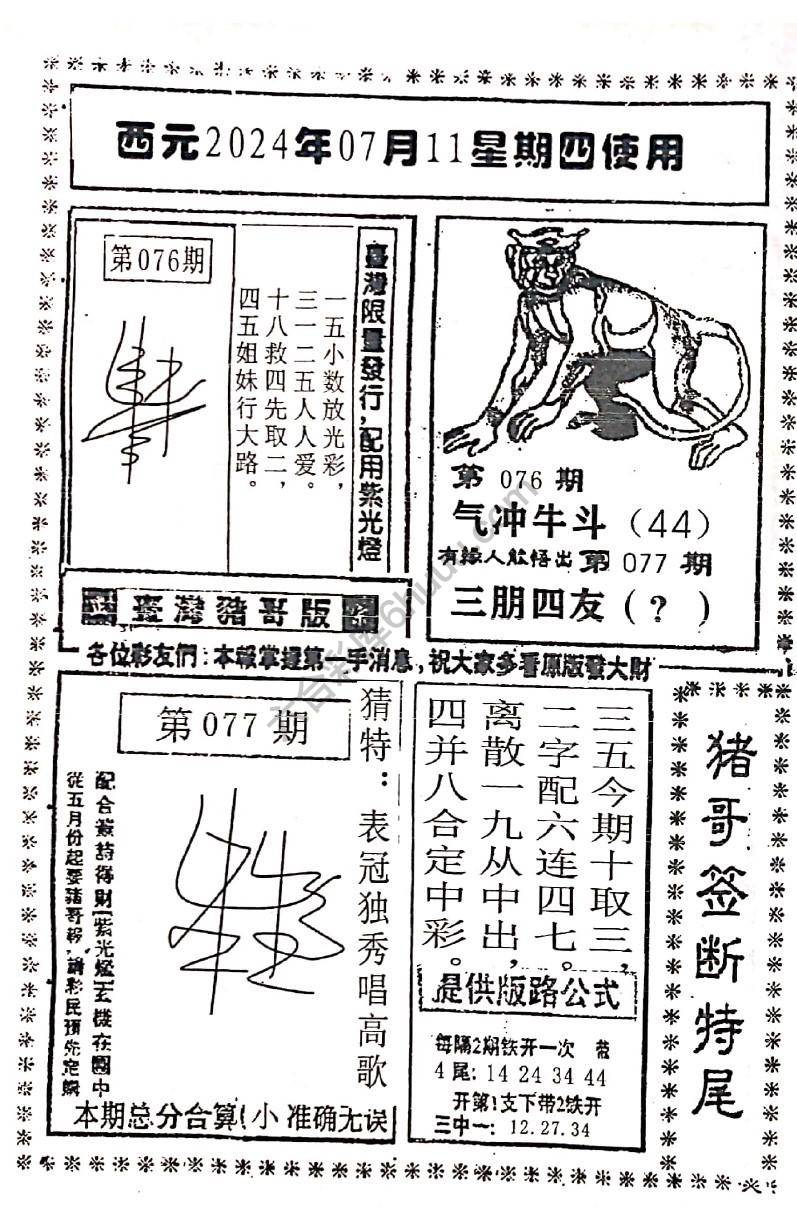 西元2024年07月11星期四使用
第076期
一五小数放光彩，
三一二五人人爱。
十八救四先取二，
四五姐妹行大路。
臺灣限量發行，配用紫光燈
第 076 期
气冲牛斗（44）
有緣人能悟出 第 077 期
三朋四友（?）
臺灣豬哥版
各位彩友們：本報掌握第一手消息，祝大家多看原版發大財
第077期
猜特：表冠独秀唱高歌
從五月份起要豬哥報，請彩民預先定購
本期总分合算(小 准确无误
三五今期十取三，
二字配六连四七。
离散一九从中出，
四并八合定中彩。
提供版路公式
每隔2期铁开一次 带
4尾：14 24 34 44
开第1支下带2铁开
三中一：12.27.34
猪哥签断特尾